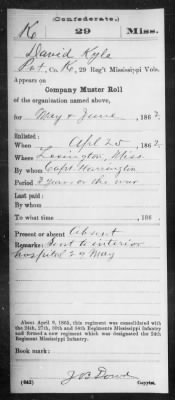 (Confederate.)
K 29 Miss.
David Kyle
Pvt, Co. K, 29 Reg't Mississippi Vols.
Appears on
Company Muster Roll
of the organization named above,
for May & June, 1862.
Enlisted:
When Apl 25, 1862.
Where Lexington, Miss
By whom Capt. Harrington
Period 3 years or the war
Last paid:
By whom
To what time , 186 .
Present or absent Absent
Remarks: Sent to interior
hospital 29 May
About April 9, 1865, this regiment was consolidated with
the 24th, 27th, 30th and 34th Regiments Mississippi Infantry
and formed a new regiment which was designated the 24th
Regiment Mississippi Infantry.
Book mark:
(642) J O Dowd Copyist.